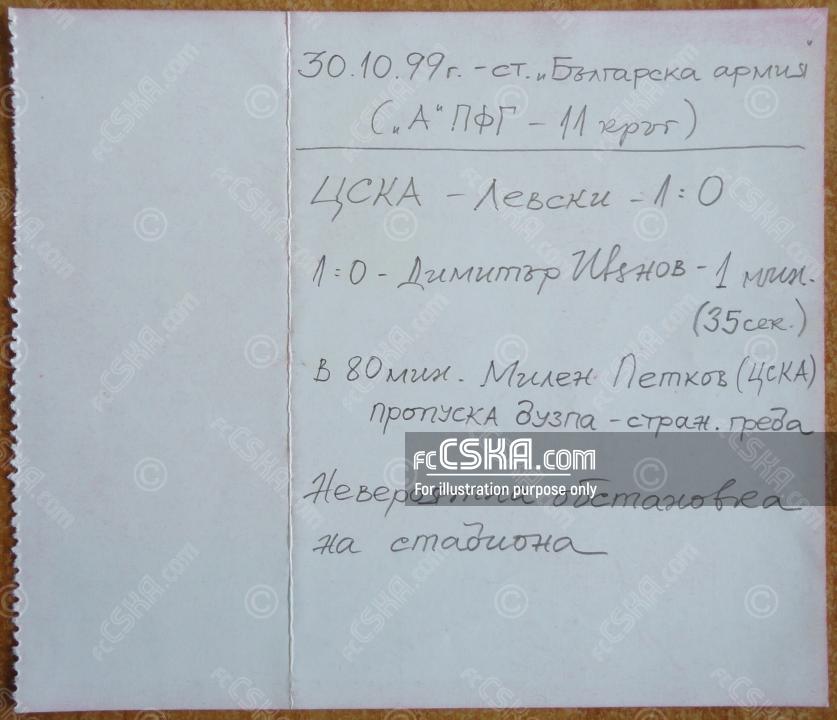 30.10.99г. - ст. „Българска армия"
(„А" ПФГ - 11 кръг)
ЦСКА - Левски - 1:0
1:0 - Димитър Иванов - 1 мин.
(35сек.)
В 80 мин. Милен Петков (ЦСКА)
пропуска дузпа - страж. греда
fcCSKA.com
For illustration purpose only
Невероятна обстановка
на стадиона